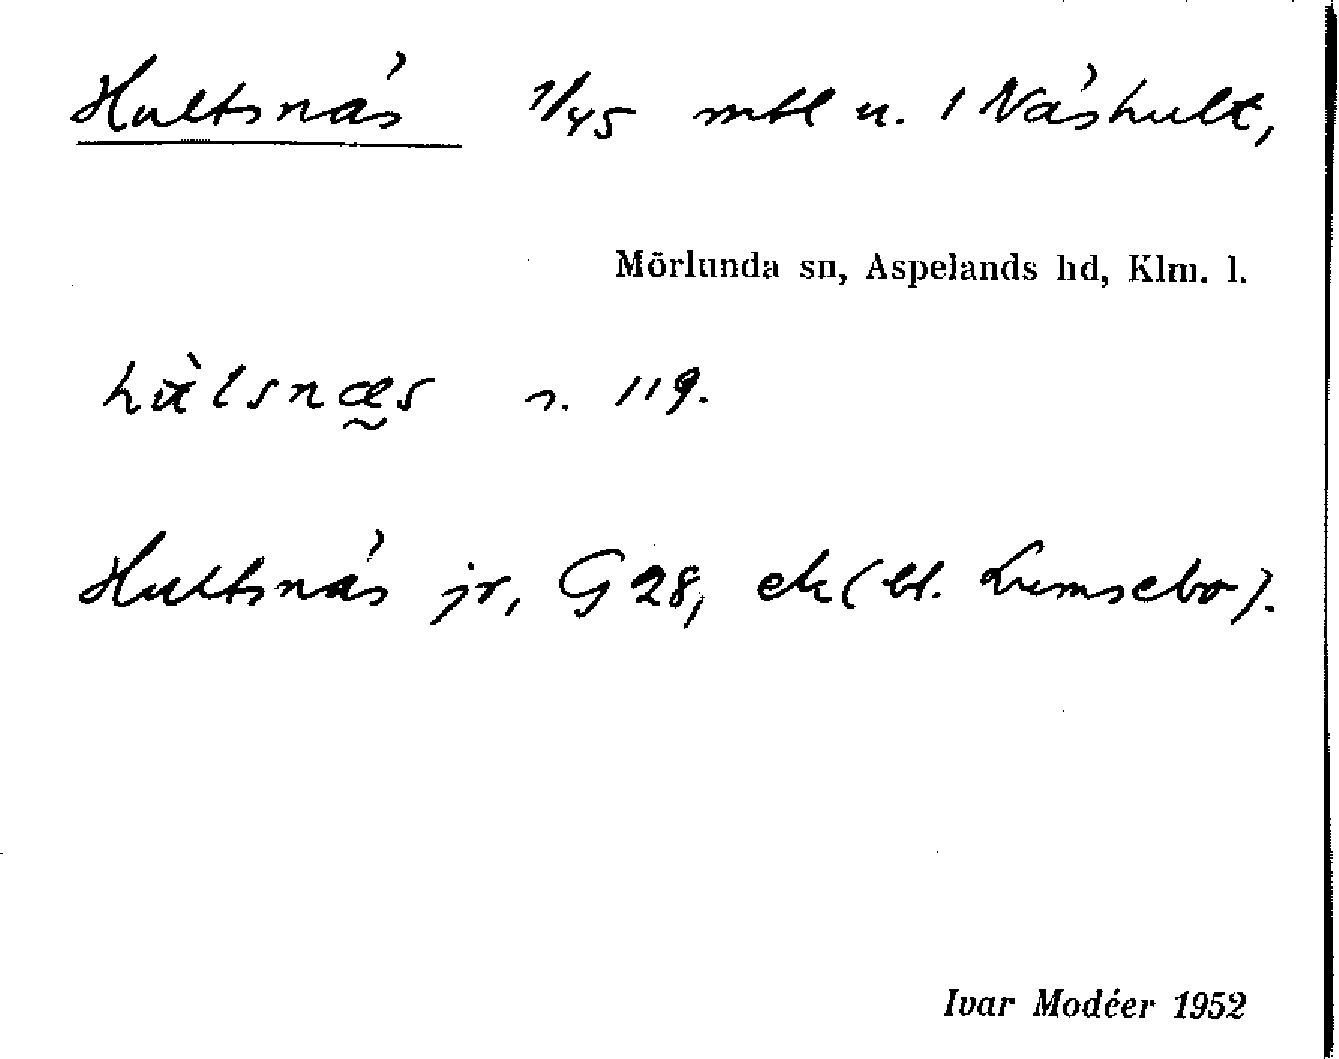 Hultsnäs 7/45 mtl u. 1 Näshult,
Mörlunda sn, Aspelands hd, Klm. l.
s. 119.
Hultsnäs jr, G 28, ek (bl. Lumsebo).
Ivar Modéer 1952